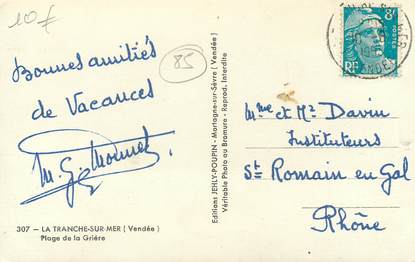 10f
Bonnes amitiés
de Vacances
85
307 - LA TRANCHE-SUR-MER (Vendée)
Plage de la Grière
Editions JEHLY-POUPIN - Mortagne-sur-Sèvre (Vendée)
Véritable Photo au Bromure - Reprod. Interdite
8F
POSTES
RF
Mme et Mr Davin
Instituteurs
St Romain en Gal
Rhône